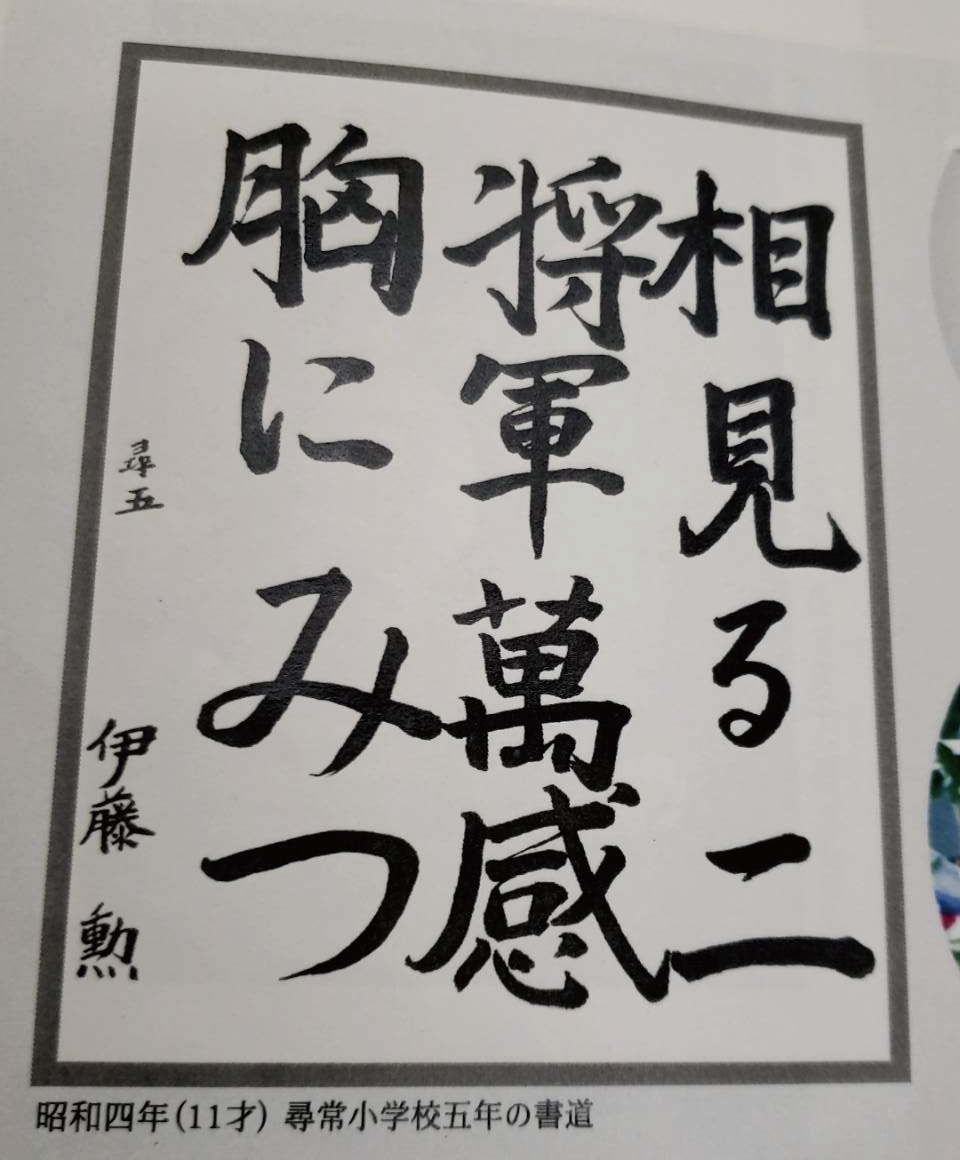 相見る二
将軍萬感
胸にみつ
尋五 伊藤勲
昭和四年(11才) 尋常小学校五年の書道